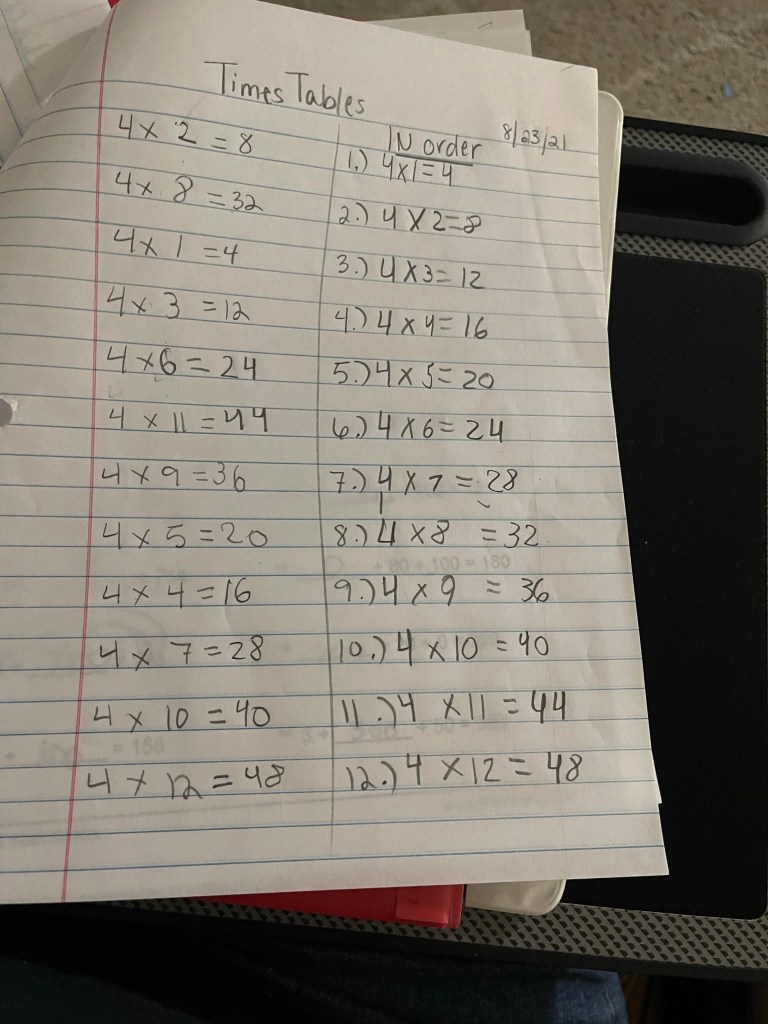 Times Tables
8/23/21
4 x 2 = 8
4 x 8 = 32
4 x 1 = 4
4 x 3 = 12
4 x 6 = 24
4 x 11 = 44
4 x 9 = 36
4 x 5 = 20
4 x 4 = 16
4 x 7 = 28
4 x 10 = 40
4 x 12 = 48
IN order
1.) 4x1=4
2.) 4 x 2=8
3.) 4 x3= 12
4.) 4 x 4= 16
5.) 4 x 5= 20
6.) 4 x 6= 24
7.) 4 x 7 = 28
8.) 4 x 8 = 32
9.) 4 x 9 = 36
10.) 4 x 10 = 40
11.) 4 x 11 = 44
12.) 4 x 12 = 48
+ 80 + 100 = 180